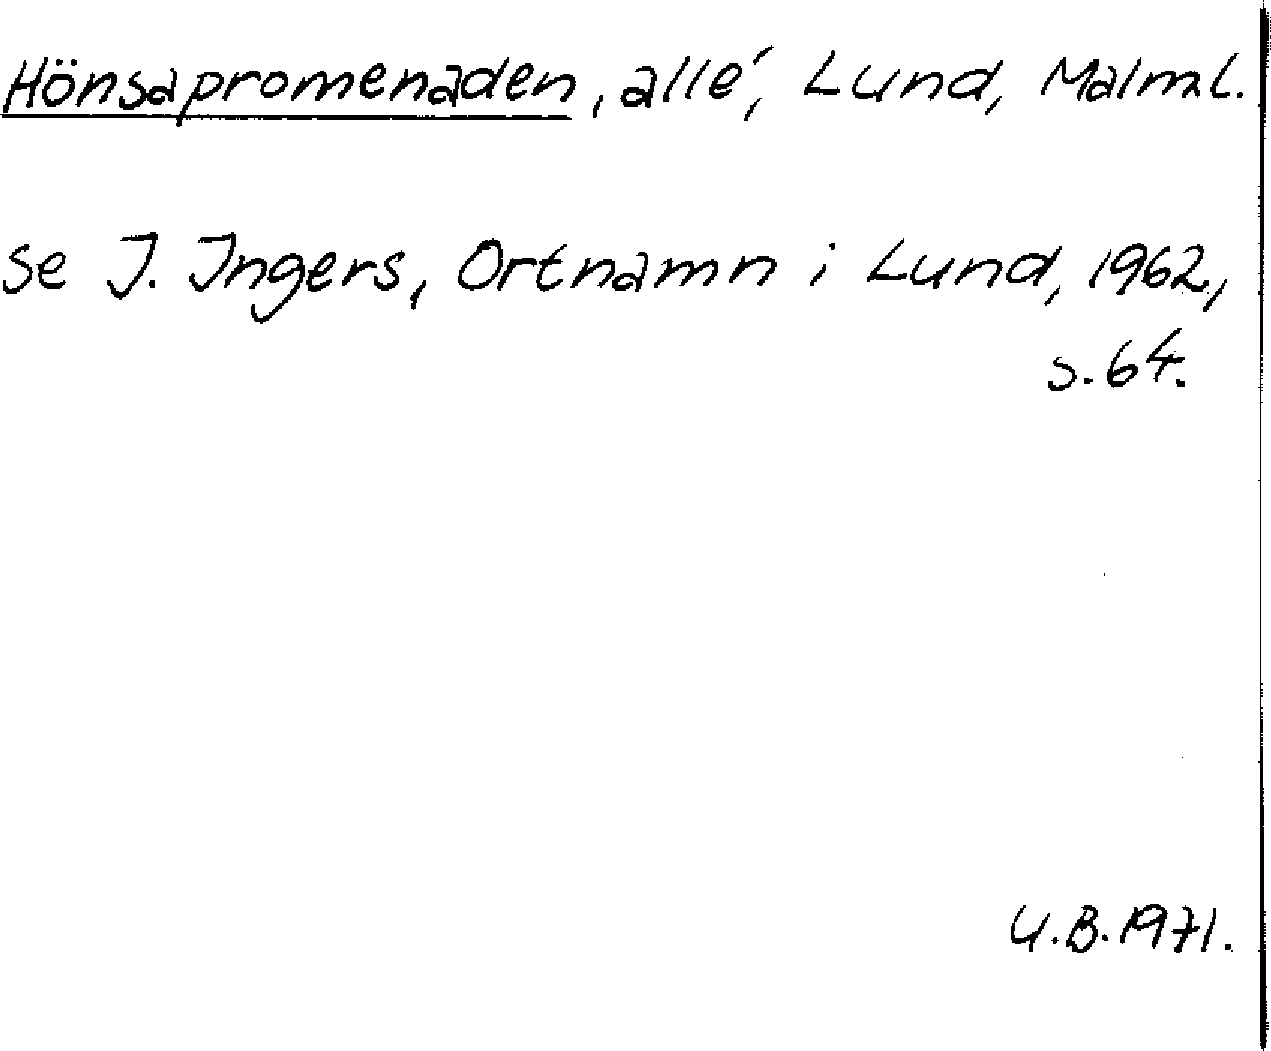 Hönsapromenaden, allé, Lund, Malm.l.
se I. Ingers, Ortnamn i Lund, 1962,
s. 64.
U.B. 1971.